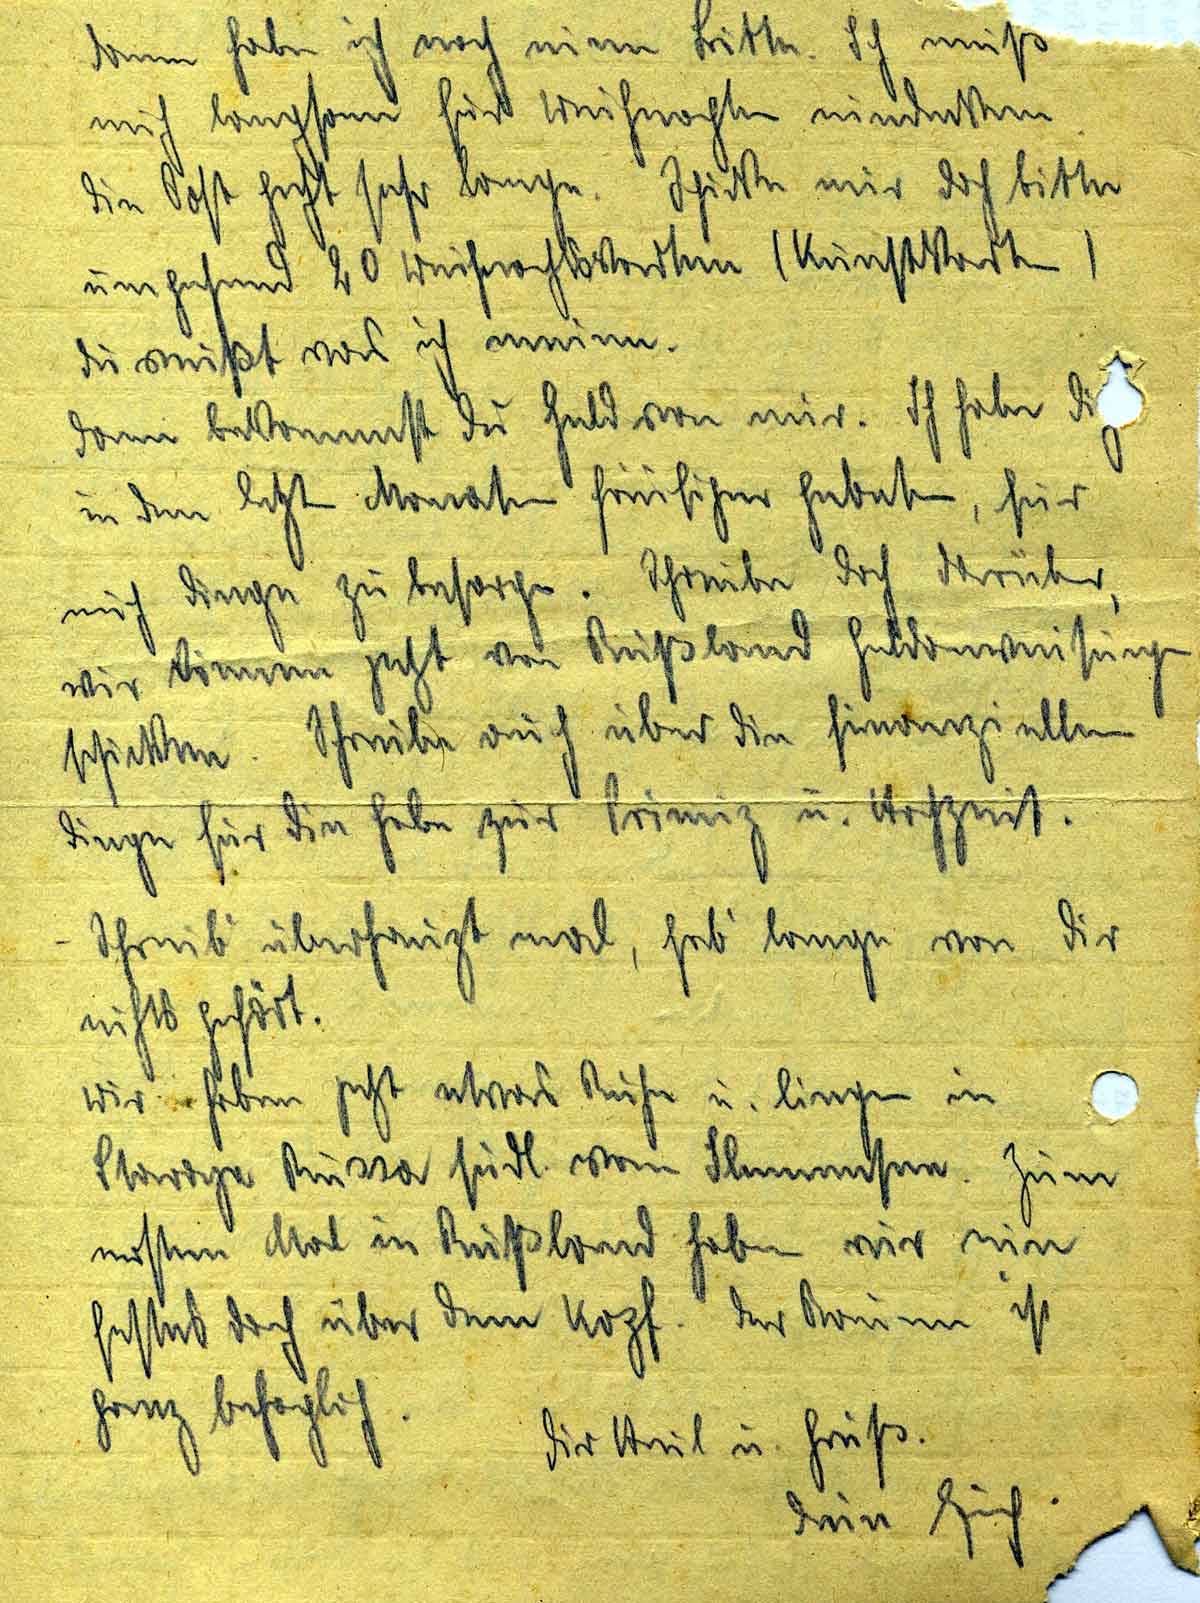 dann habe ich noch eine Bitte. Ich muß
mich langsam für Weihnachten eindecken
die Post geht sehr lange. Schicke mir doch bitte
umgehend 20 Weihnachtskarten (Kunstkarten)
du weißt was ich meine.
dann bekommst du Geld von mir. Ich habe dich
in den letzt Monaten häufiger gebeten, für
mich dinge zu besorgen. Schreibe doch darüber,
wir können jetzt von Rußland Geldanweisungen
schicken. Schreibe auch über die finanziellen
dinge für die Gabe zur Primiz u. Hochzeit.
- Schreib' überhaupt mal, hab' lange von dir
nichts gehört.
Wir haben jetzt etwas Ruhe u. liegen in
Staraya Russa südl. vom Ilmensee. Zum
ersten Mal in Rußland haben wir ein
festes dach über dem Kopf. der Raum ist
ganz behaglich.
dir Heil u. Gruß.
dein